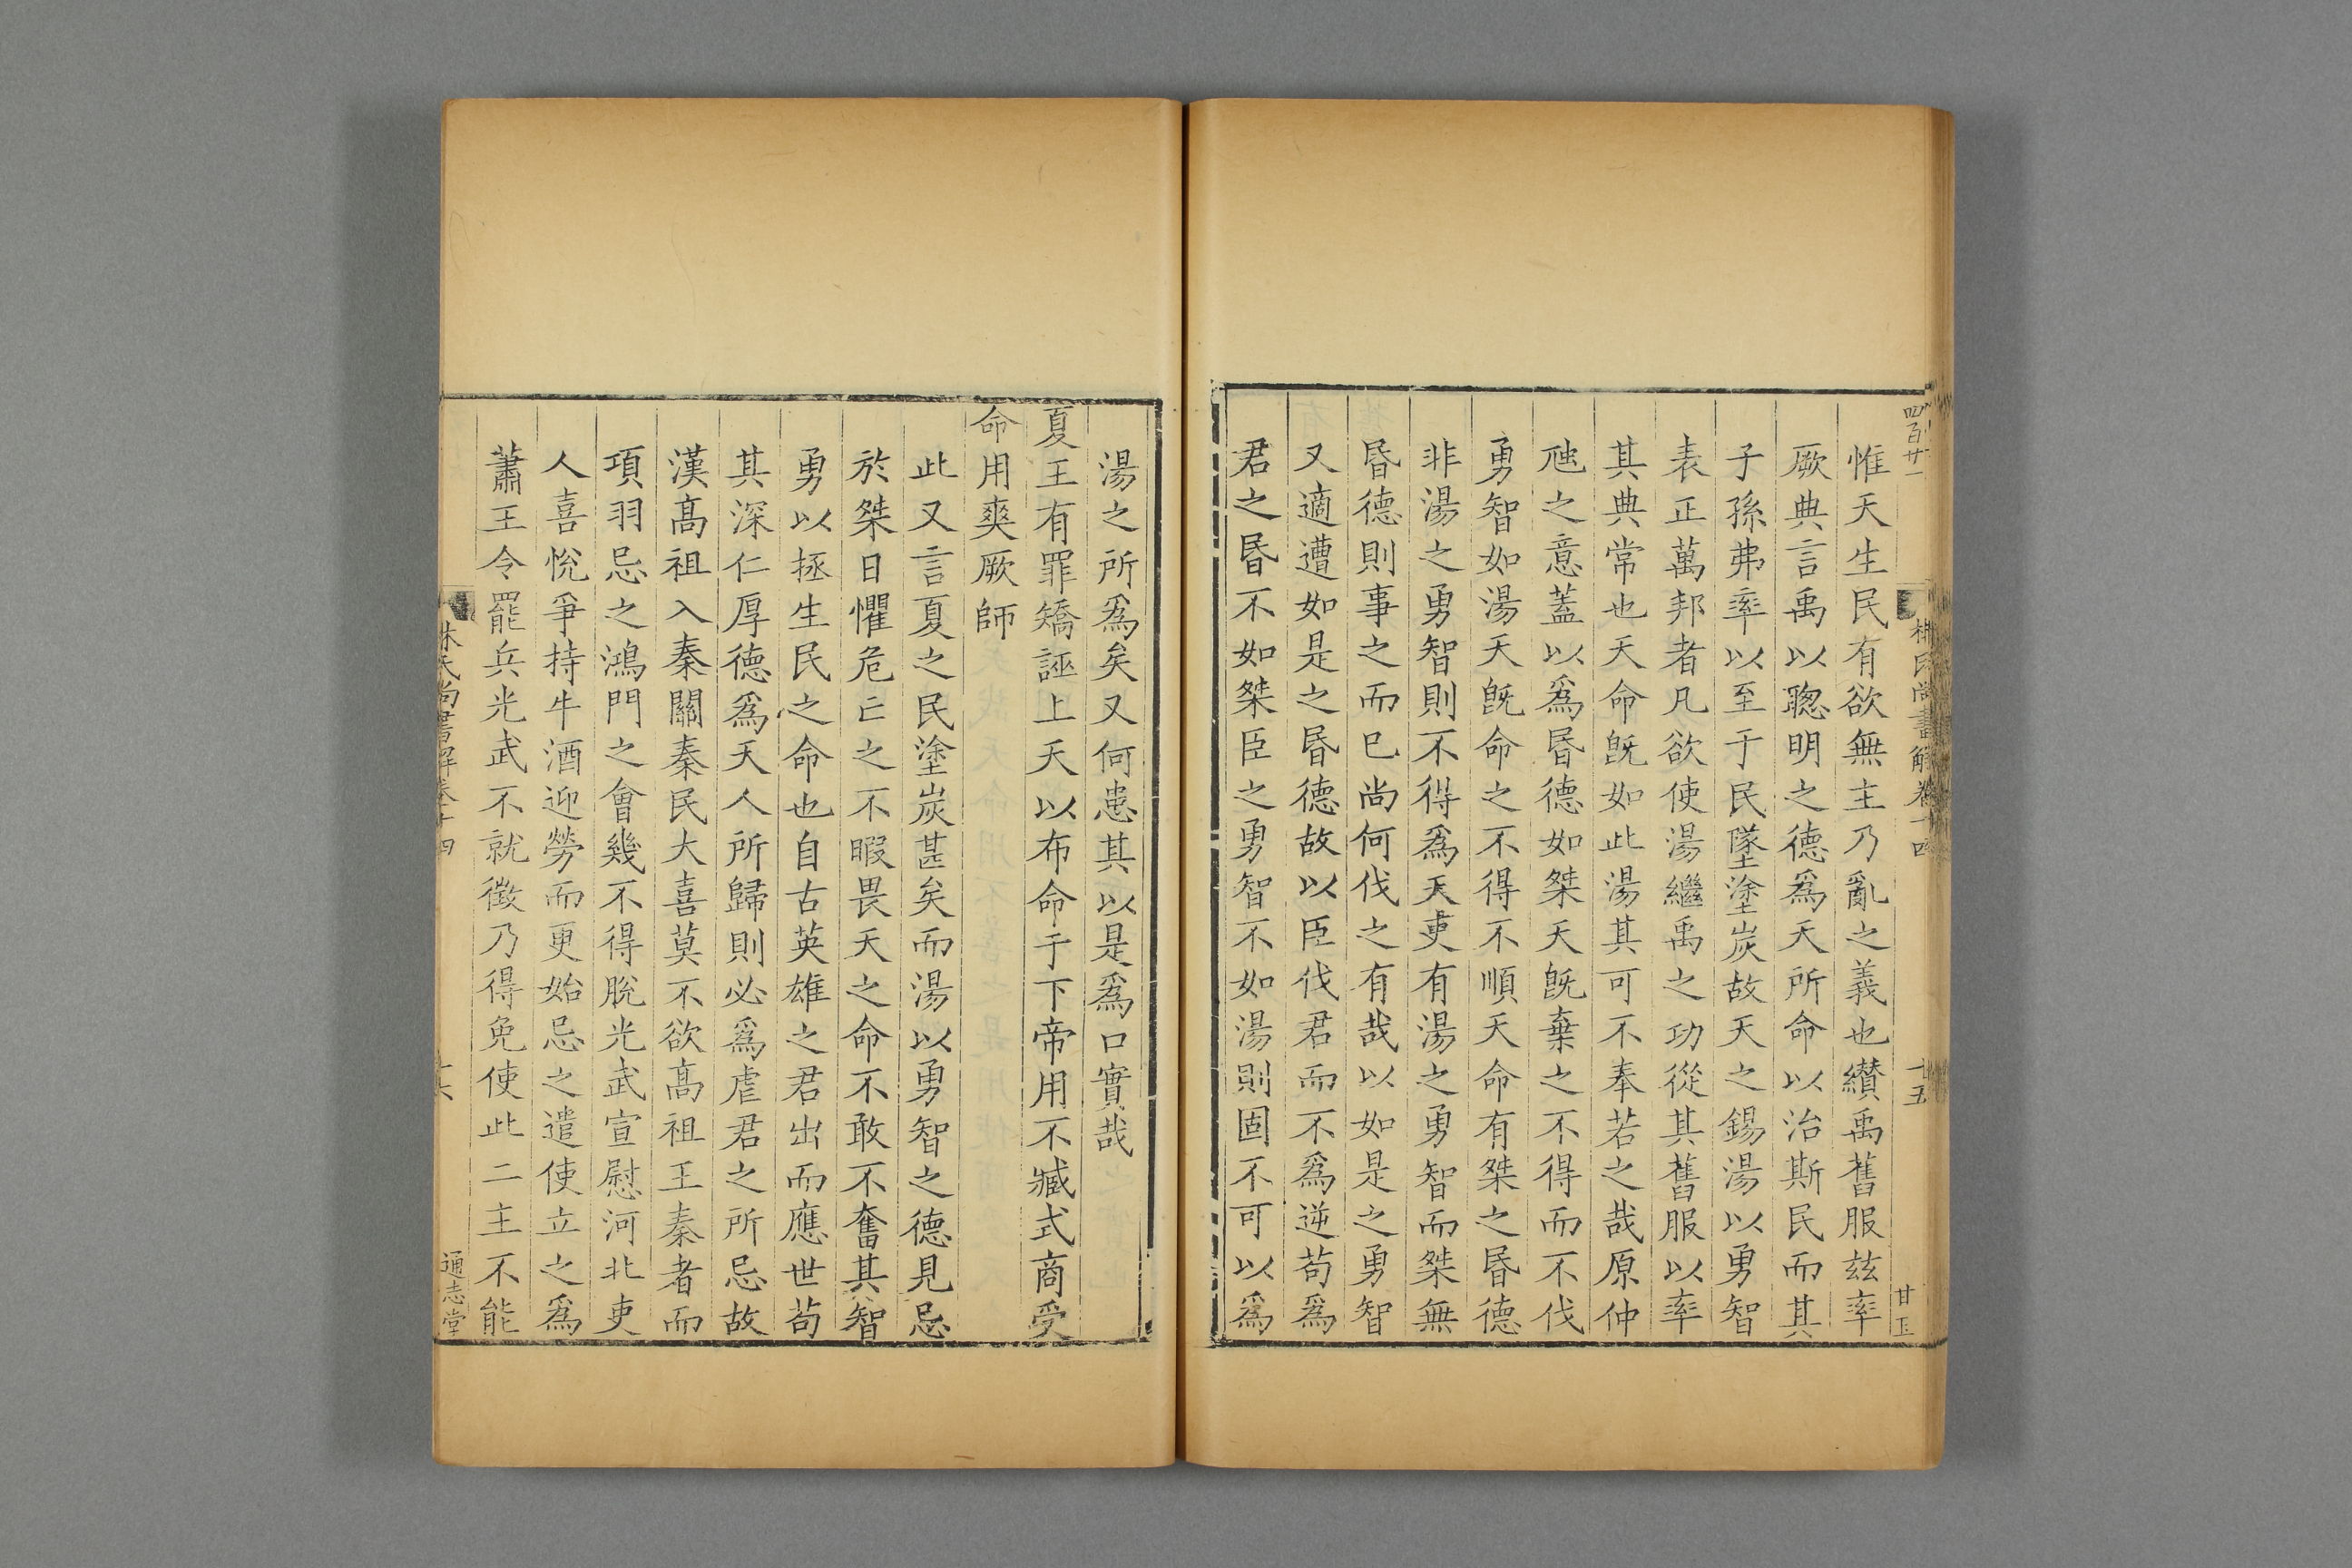 四百廿一
林氏尚書解卷十四
十五
惟天生民有欲無主乃亂之義也纉禹舊服兹率
厥典言禹以聰明之德爲天所命以治斯民而其
子孫弗率以至于民墜塗炭故天之錫湯以勇智
表正萬邦者凡欲使湯繼禹之功從其舊服以率
其典常也天命旣如此湯其可不奉若之哉原仲
虺之意蓋以爲昬德如桀天旣棄之不得而不伐
勇智如湯天旣命之不得不順天命有桀之昬德
非湯之勇智則不得爲天吏有湯之勇智而桀無
昬德則事之而巳尚何伐之有哉以如是之勇智
又適遭如是之昬德故以臣伐君而不爲逆苟爲
君之昬不如桀臣之勇智不如湯則固不可以爲
湯之所爲矣又何患其以是爲口實哉
夏王有罪矯誣上天以布命于下帝用不臧式商受
命用爽厥師
此又言夏之民塗炭甚矣而湯以勇智之德見忌
於桀日懼危亡之不暇畏天之命不敢不奮其智
勇以拯生民之命也自古英雄之君出而應世苟
其深仁厚德爲天人所歸則必爲虐君之所忌故
漢髙祖入秦關秦民大喜莫不欲髙祖王秦者而
項羽忌之鴻門之會幾不得脫光武宣慰河北吏
人喜悅爭持牛酒迎勞而更始忌之遣使立之爲
蕭王令罷兵光武不就徵乃得免使此二主不能
林氏尚書解卷十四
十六
通志堂